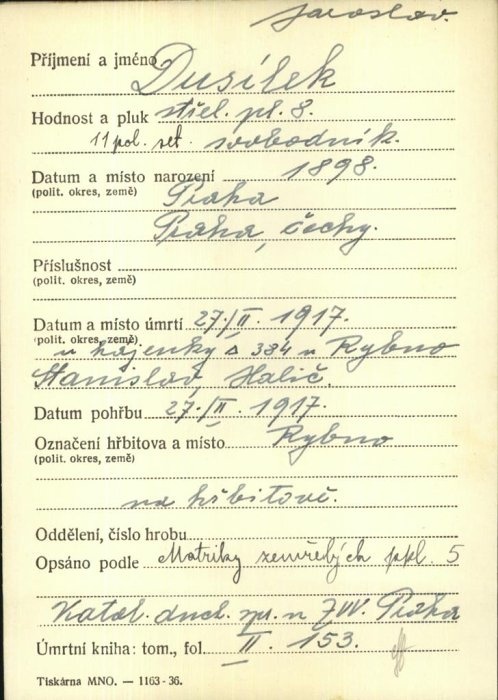 Jaroslav.
Příjmení a jméno Dusílek
Hodnost a pluk střel. pl. 8.
11 pol. set. svobodník.
Datum a místo narození 1898.
(polit. okres, země) Praha
Praha, Čechy.
Příslušnost
(polit. okres, země)
Datum a místo úmrtí 27./II. 1917.
(polit. okres, země)
u hájenky Δ 384 u Rybno
Stanislav, Halič.
Datum pohřbu 27./II. 1917.
Označení hřbitova a místo Rybno
(polit. okres, země)
na hřbitově.
Oddělení, číslo hrobu
Opsáno podle Matriky zemřelých ppl. 5
Katol. duch. spr. u ZVV. Praha
Úmrtní kniha: tom., fol. II. 153.
Tiskárna MNO. — 1163-36.